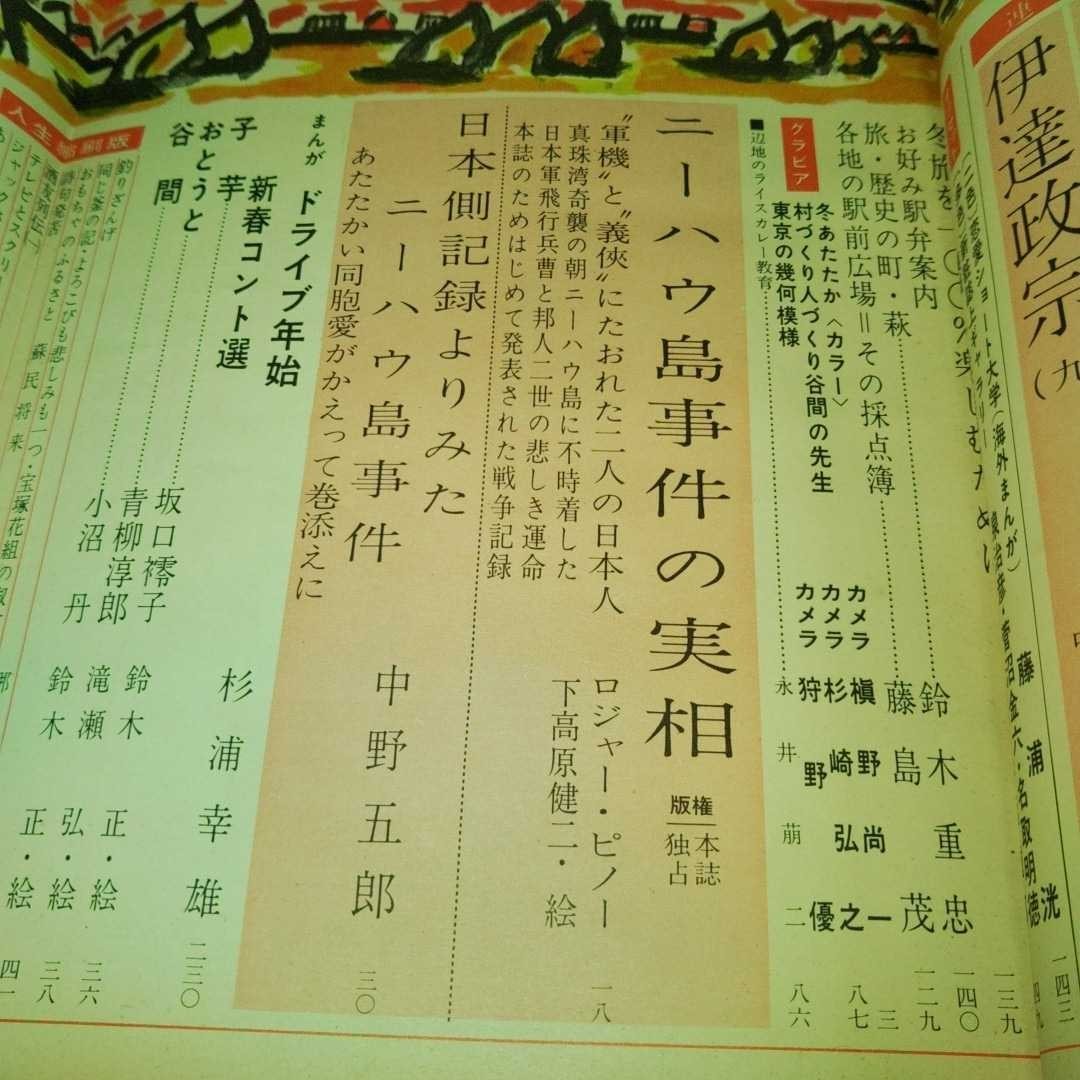 連
伊達政宗
(九
藤浦洸
一四三
冬旅を
一三九
お好み駅弁案内
鈴木重忠
一四〇
旅・歴史の町・萩
藤島茂
一二九
各地の駅前広場＝その採点簿
グラビア
冬あたたか〈カラー〉
カメラ 槇野尚一
三
村づくり人づくり谷間の先生
カメラ 杉崎弘之
八七
東京の幾何模様
カメラ 狩野優
■辺地のライスカレー教育
永井萠二
八六
ニーハウ島事件の実相
版権本誌独占
〝軍機〟と〝義俠〟にたおれた二人の日本人
ロジャー・ピノー
一八
真珠湾奇襲の朝ニーハウ島に不時着した
下高原健二・絵
日本軍飛行兵曹と邦人二世の悲しき運命
本誌のためはじめて発表された戦争記録
日本側記録よりみた
ニーハウ島事件
中野五郎
三〇
あたたかい同胞愛がかえって巻添えに
まんが
ドライブ年始
杉浦幸雄
二三〇
新春コント選
子芋
坂口䙥子
鈴木正・絵
三六
おとうと
青柳淳郎
滝瀬弘・絵
三八
谷間
小沼丹
鈴木正・絵
四一
人生縮刷版
釣りざんげ
同じ峯の記・よろこびも悲しみも一つ・宝塚花組の
おもちゃのふるさと
蘇民将来